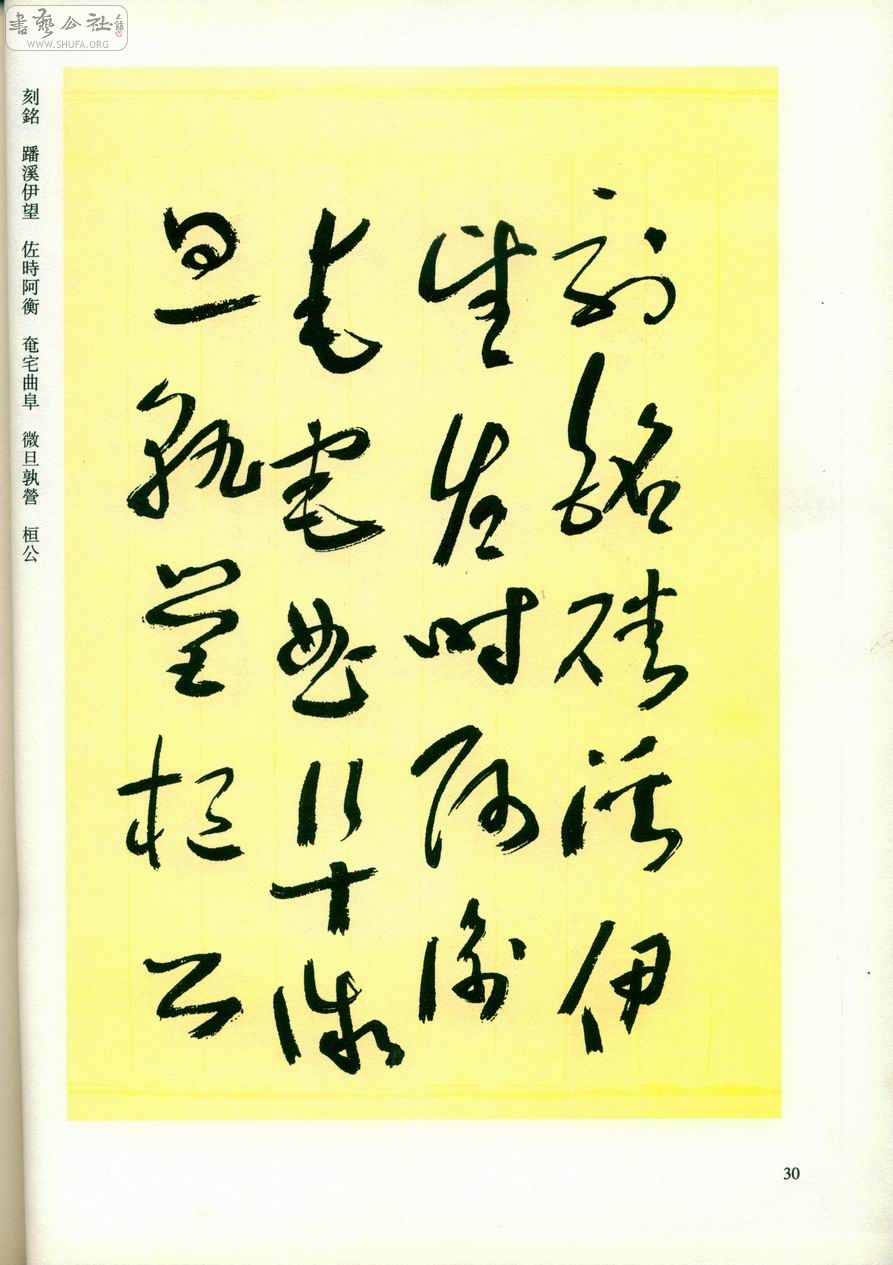 書藝公社
WWW.SHUFA.ORG
刻銘磻溪伊
望佐時阿衡
奄宅曲阜微
旦孰營桓公
刻銘 蹯溪伊望 佐時阿衡 奄宅曲阜 微旦孰營 桓公
30